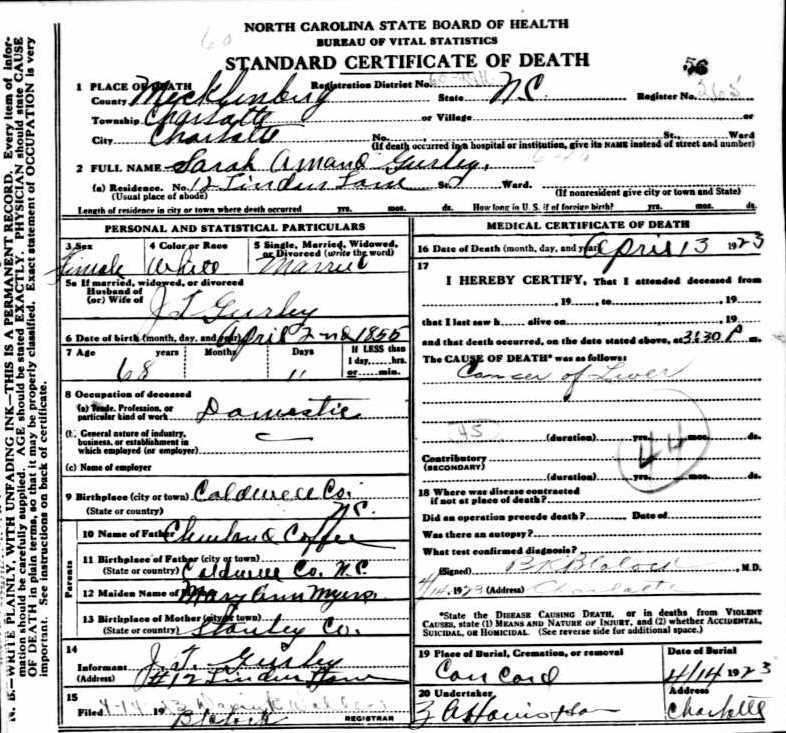 NORTH CAROLINA STATE BOARD OF HEALTH
BUREAU OF VITAL STATISTICS
STANDARD CERTIFICATE OF DEATH
60
56
1 PLACE OF DEATH Registration District No.
County Mecklenburg State N.C. Register No. 265
Township Charlotte or Village or
City Charlotte No. St., Ward
(If death occurred in a hospital or institution, give its NAME instead of street and number)
2 FULL NAME Sarah Amand Gurley.
(a) Residence. No. 12 Linden Lane St., Ward.
(Usual place of abode) (If nonresident give city or town and State)
Length of residence in city or town where death occurred yrs. mos. ds. How long in U. S. if of foreign birth? yrs. mos. ds.
PERSONAL AND STATISTICAL PARTICULARS
3 Sex 4 Color or Race 5 Single, Married, Widowed, or Divorced (write the word)
Female White Married
5a If married, widowed, or divorced
Husband of
(or) Wife of J T Gurley
6 Date of birth (month, day, and year) April 2nd 1855
7 Age years Months Days If LESS than
1 day, hrs.
or min.
68 11
8 Occupation of deceased
(a) Trade, Profession, or
particular kind of work Domestic
(b) General nature of industry,
business, or establishment in
which employed (or employer)
(c) Name of employer
9 Birthplace (city or town) Caldwell Co.
(State or country) N.C.
Parents
10 Name of Father Coffee
11 Birthplace of Father (city or town)
(State or country) Caldwell Co. N.C.
12 Maiden Name of Mary Ann Myers
13 Birthplace of Mother (city or town)
(State or country) Stanley Co.
14
Informant J. T. Gurley
(Address) #12 Linden Lane
15
Filed 4-14 1923
Blalock REGISTRAR
MEDICAL CERTIFICATE OF DEATH
16 Date of Death (month, day, and year) April 13 1923
17
I HEREBY CERTIFY, That I attended deceased from
, 19 , to , 19
that I last saw h alive on , 19
and that death occurred, on the date stated above, at 3:30 P m.
The CAUSE OF DEATH* was as follows:
Cancer of Liver
45
44
(duration) yrs. mos. ds.
Contributory
(SECONDARY)
(duration) yrs. mos. ds.
18 Where was disease contracted
if not at place of death?
Did an operation precede death? Date of
Was there an autopsy?
What test confirmed diagnosis?
(Signed) B K Blalock, M.D.
4/14 1923 (Address) Charlotte
*State the DISEASE CAUSING DEATH, or in deaths from VIOLENT
CAUSES, state (1) MEANS AND NATURE OF INJURY, and (2) whether ACCIDENTAL,
SUICIDAL, OR HOMICIDAL. (See reverse side for additional space.)
19 Place of Burial, Cremation, or removal Date of Burial
Concord 4/14 1923
20 Undertaker Address
Charlotte
N. B.—WRITE PLAINLY, WITH UNFADING INK—THIS IS A PERMANENT RECORD. Every item of infor-
mation should be carefully supplied. AGE should be stated EXACTLY. PHYSICIAN should state CAUSE
OF DEATH in plain terms, so that it may be properly classified. Exact statement of OCCUPATION is very
important. See instructions on back of certificate.